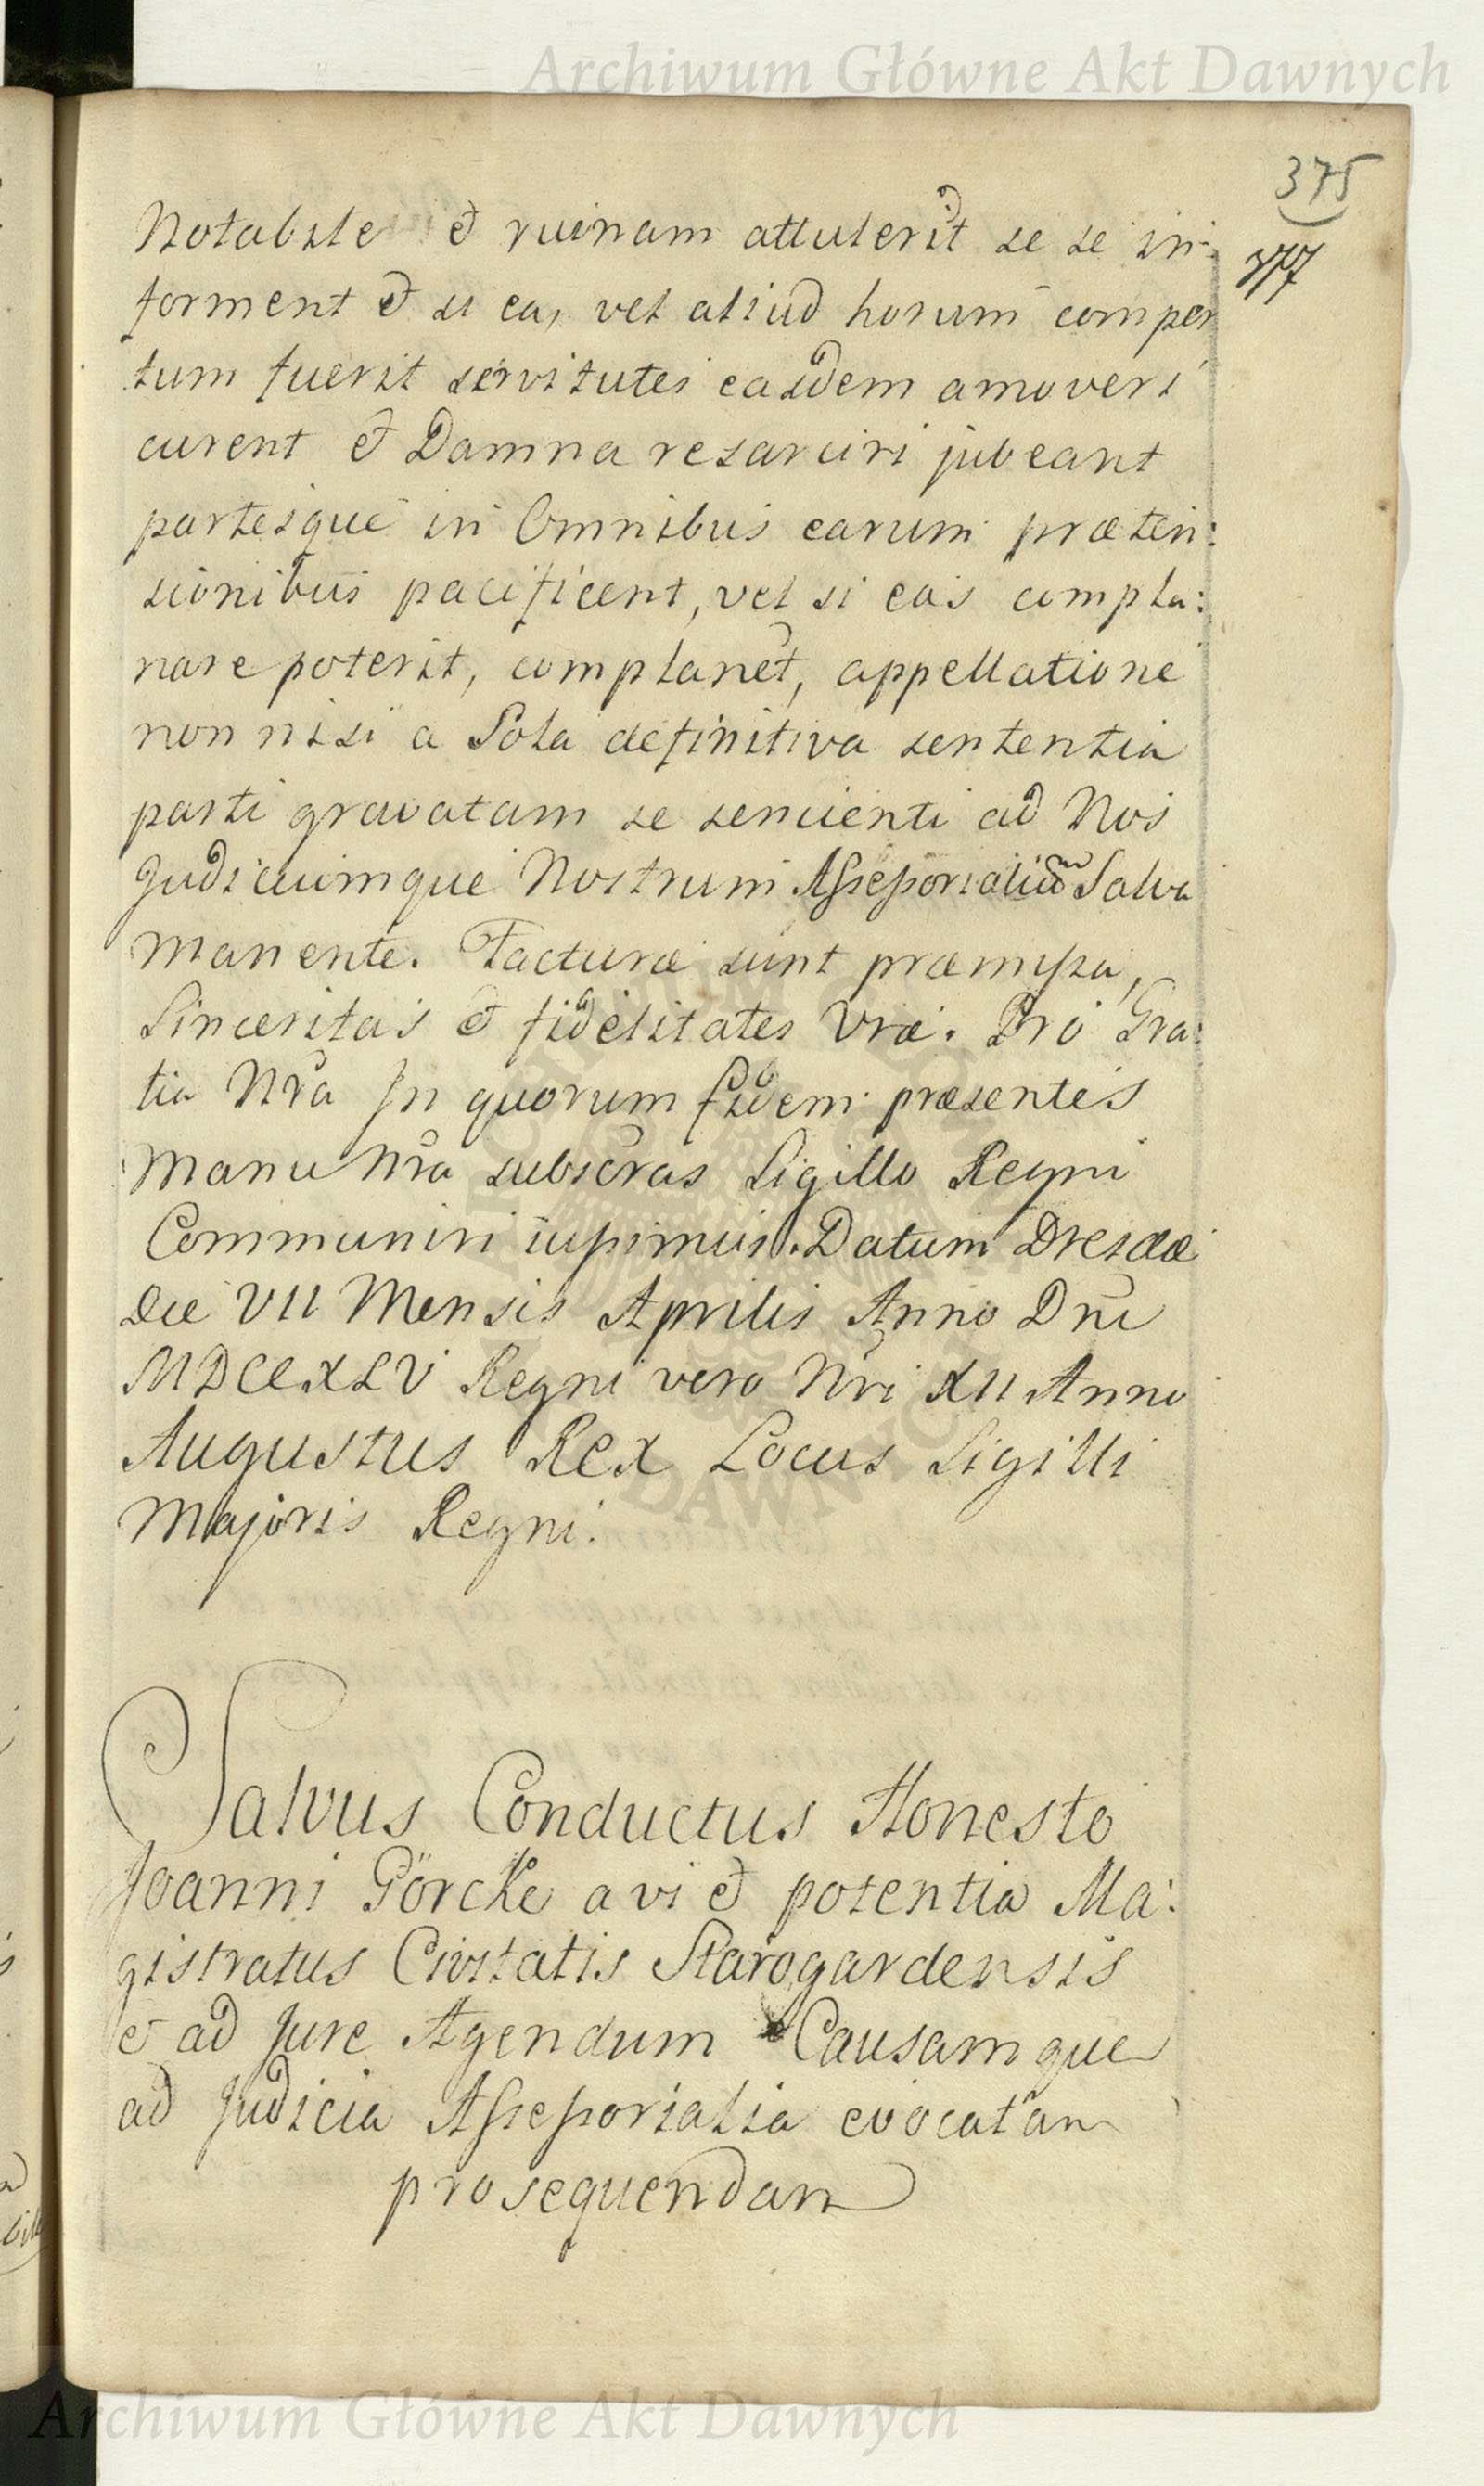 Archiwum Główne Akt Dawnych
375
377
Notabile et ruinam attulerit se se in:
forment et si ea, vel aliud horum comper
tum fuerit servitutes easdem amoveri
curent et Damna resarciri jubeant
partesque in Omnibus earum præten:
sionibus pacificent, vel si eas compla:
nare poterit, complanet, appellatione
non nisi a Sola definitiva sententia
parti gravatam se sencienti ad Nos
Judiciumque Nostrum Assessorialium Salva
manente. Facturæ sunt præmissa,
Sinceritas et fidelitates Vræ. Pro Gra:
tia Nra In quorum fidem præsentes
Manu Nra subscras Sigillo Regni
Communiri iussimus. Datum Dresdæ
Die VII Mensis Aprilis Anno Dni
MDCCXLV Regni vero Nri XII Anno
Augustus Rex Locus Sigilli
Majoris Regni.
Salvus Conductus Honesto
Joanni Görcke a vi et potentia Ma:
gistratus Civitatis Starogardensis
et ad Jure Agendum Causamque
ad Judicia Assessorialia evocatam
prosequendam
Archiwum Główne Akt Dawnych